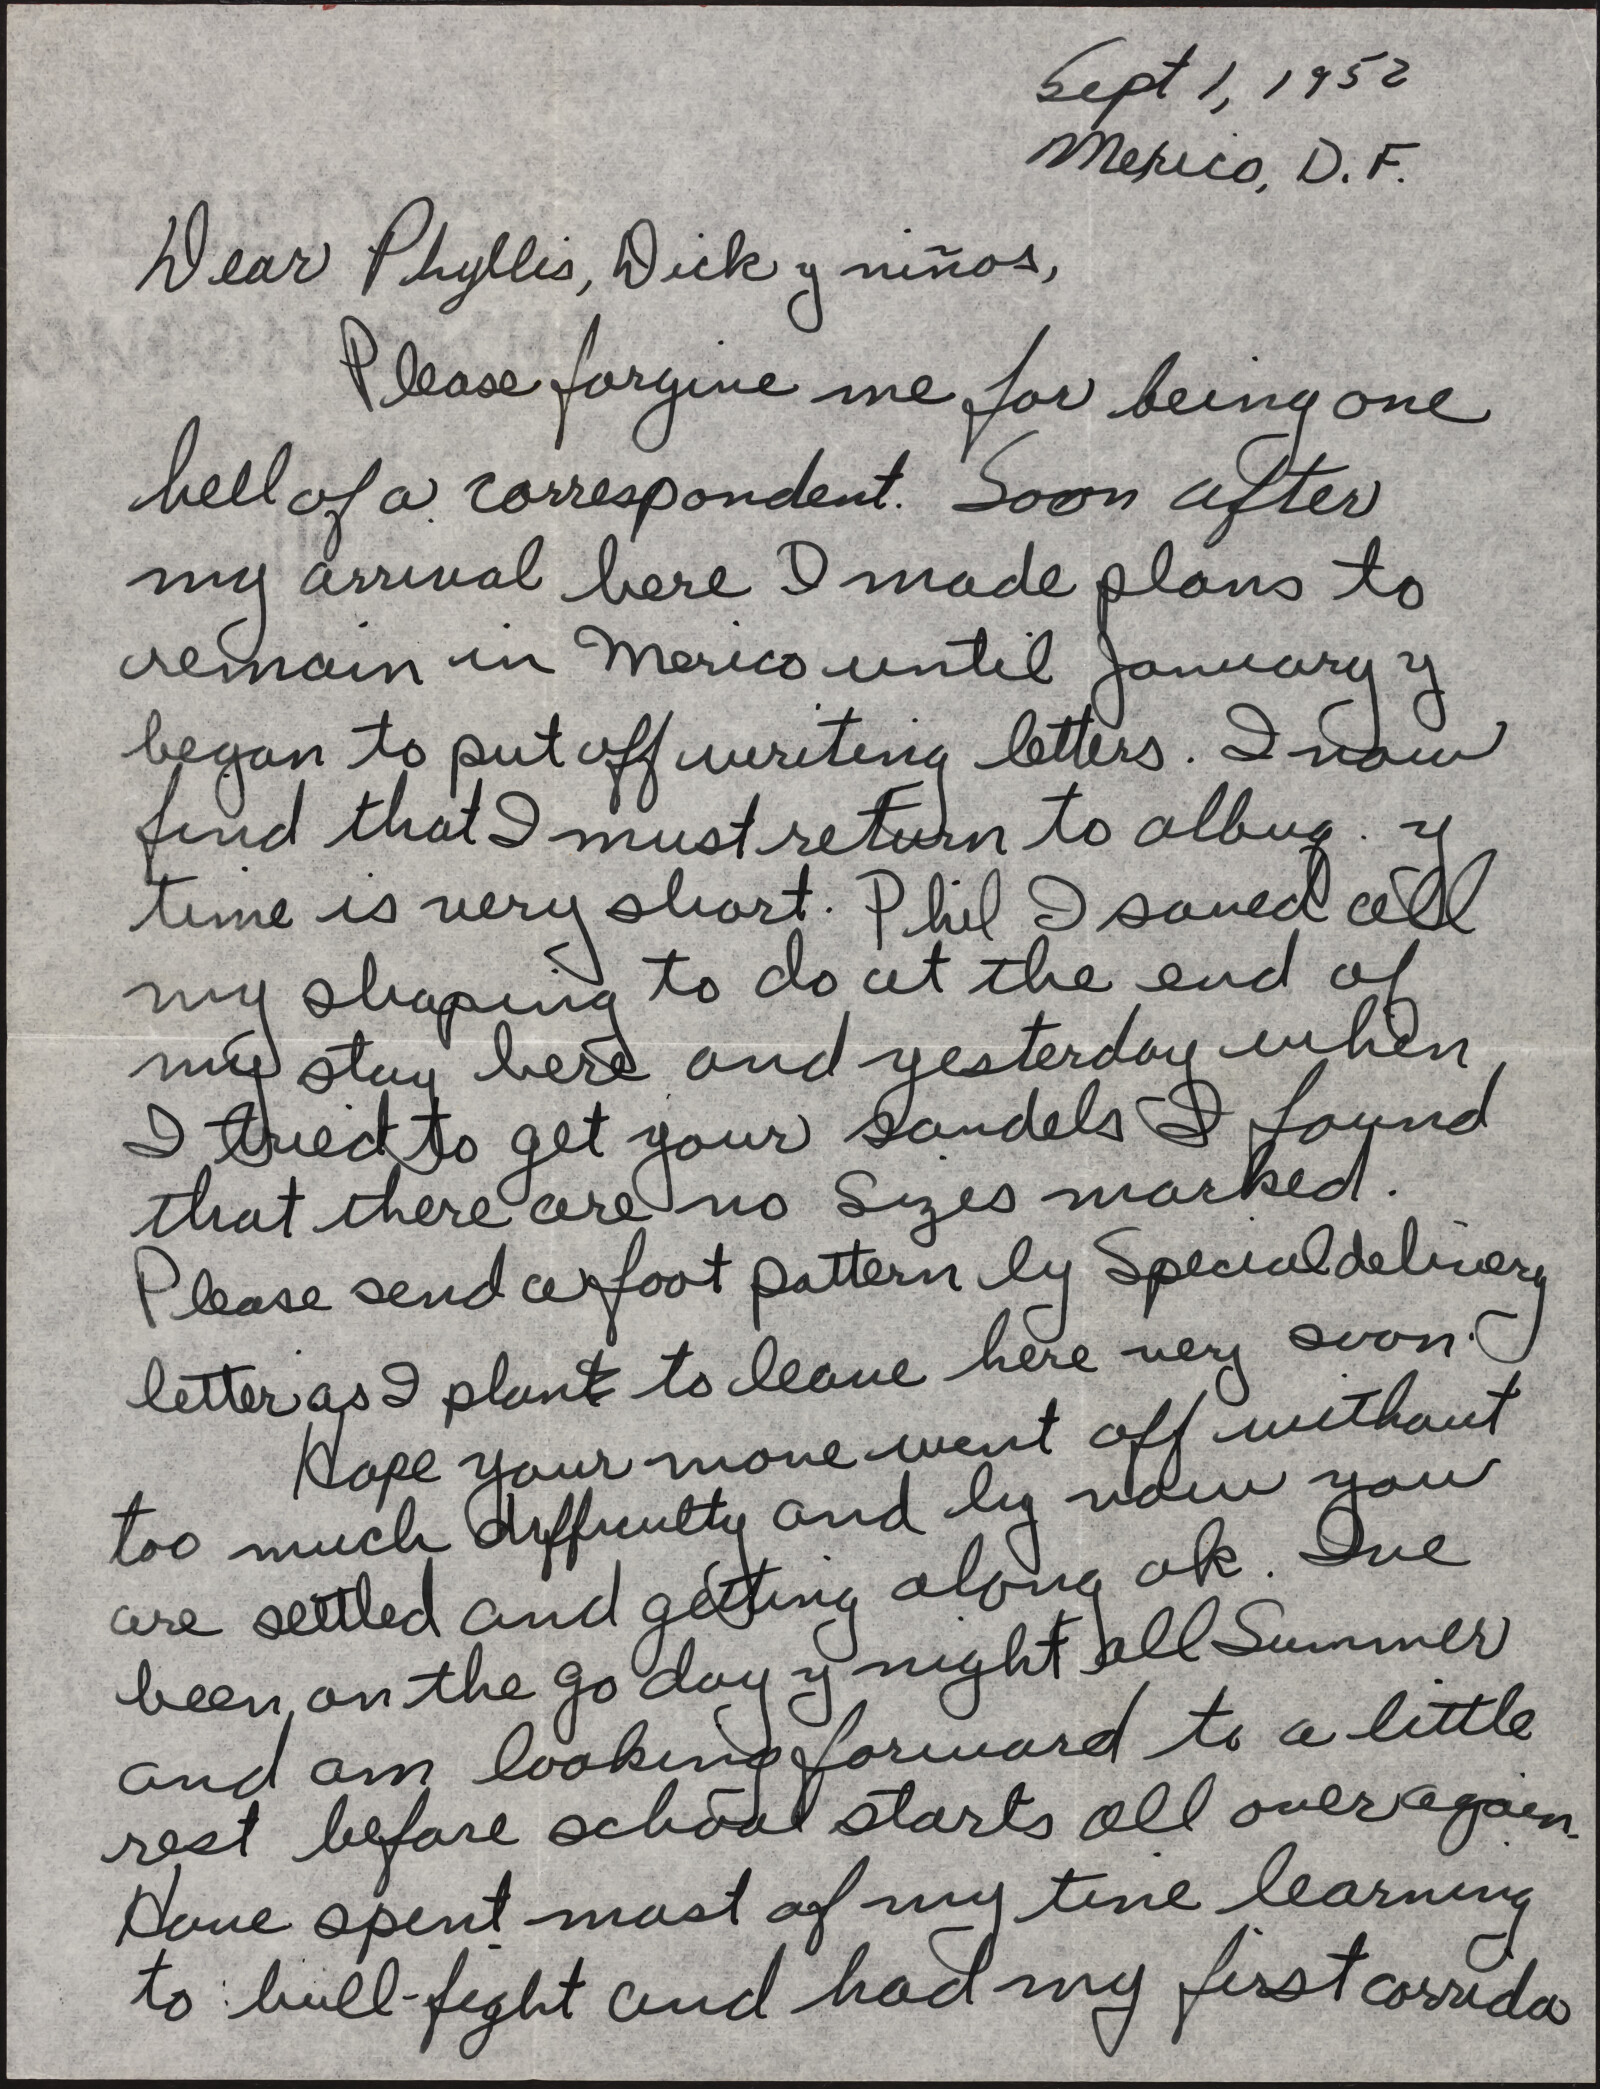 Sept 1, 1952
Mexico, D.F.
Dear Phyllis, Dick y niños,
Please forgive me for being one
hell of a correspondent. Soon after
my arrival here I made plans to
remain in Mexico until January y
began to put off writing letters. I now
find that I must return to albuq. y
time is very short. Phil I saved all
my shoping to do at the end of
my stay here and yesterday when
I tried to get your sandels I found
that there are no sizes marked.
Please send a foot pattern by Special delivery
letter as I plant to leave here very soon.
Hope your move went off without
too much difficulty and by now you
are settled and getting along ok. Ive
been on the go day y night all Summer
and am looking forward to a little
rest before school starts all over again.
Have spent most of my time learning
to bull-fight and had my first corrida